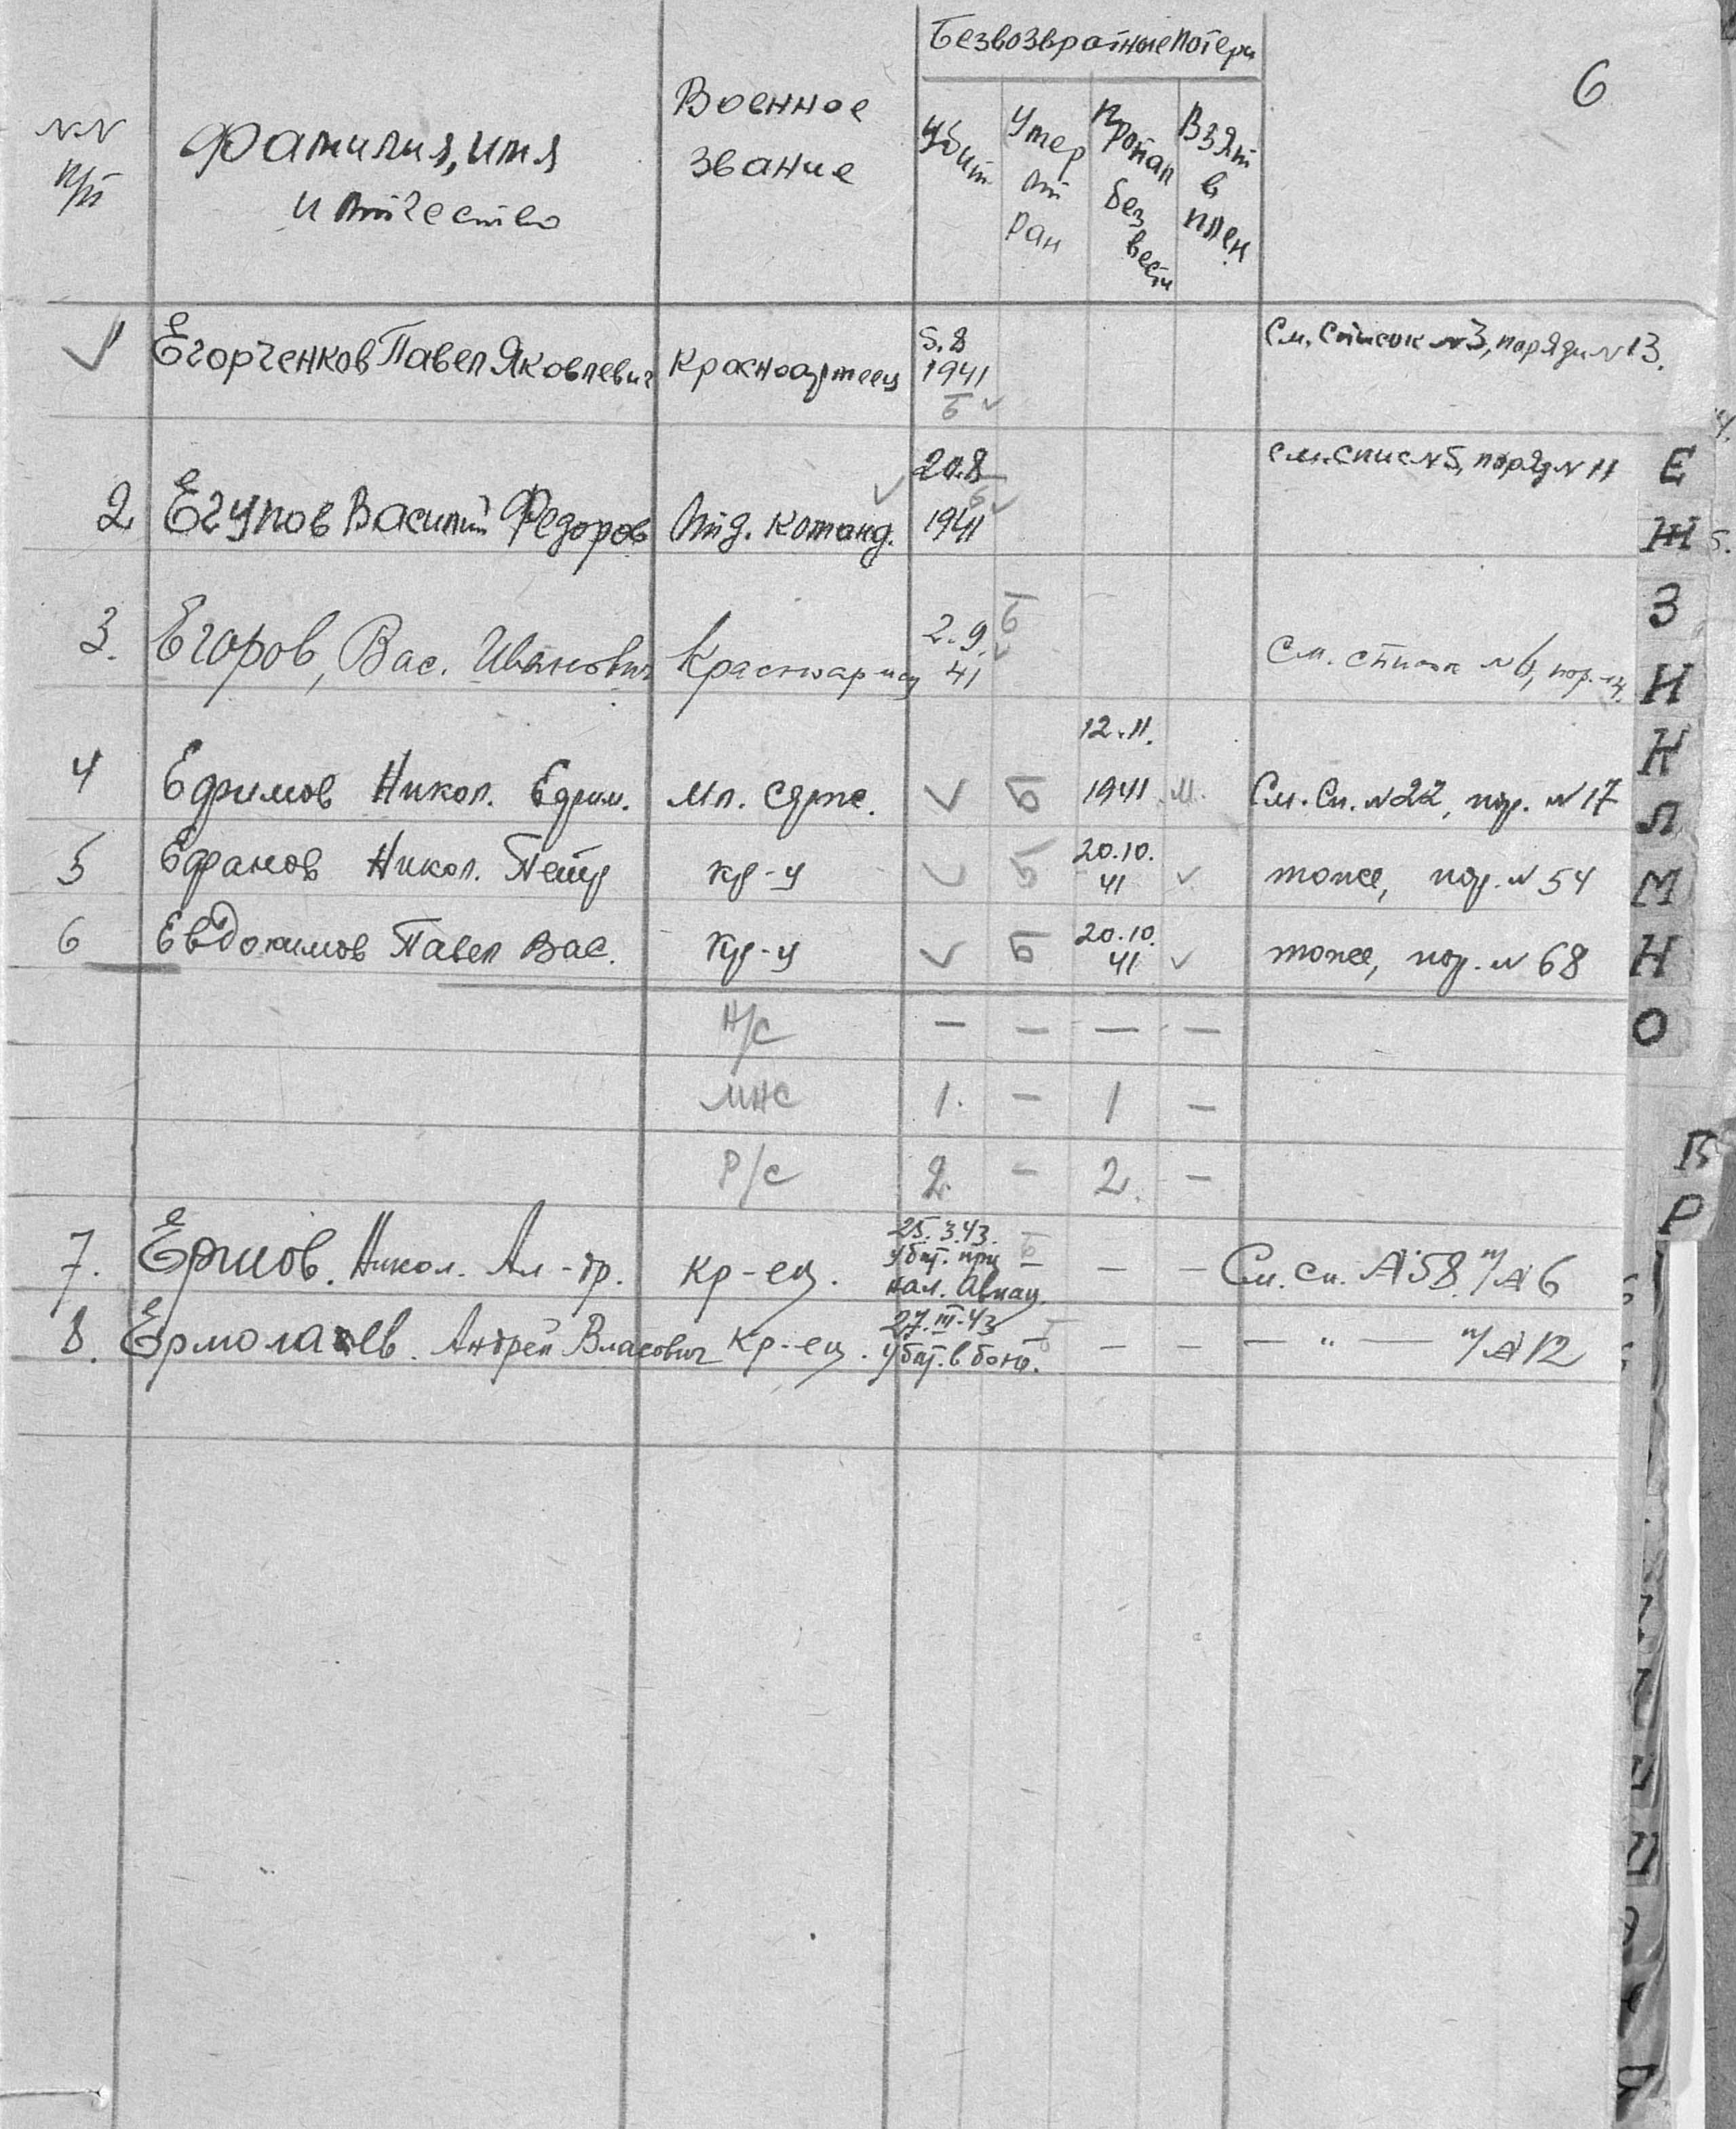 6
Безвозвратные потери
NN п/п
Фамилия, имя
и отчество
Военное
звание
Убит
Умер от ран
Пропал без вести
Взят в плен
1 Егорченков Павел Яковлевич Красноармеец 5.8 1941 См. список N3, порядк N13.
Б
2 Егупов Василий Федоров Отд. команд. 20.8 1941 см. спис N5, поряд N 11
Б
3. Егоров, Вас. Иванович Красноармеец 2.9. 41 См. список N6, пор.
Б
4 Ефимов Никол. Ефим. Мл. серж. Б 12.11. 1941 См. Сп. N22, пор. N17
5 Никол. Петр кр-ц Б 20.10. 41 тоже, пор. N 54
6 Евдокимов Павел Вас. кр-ц Б 20.10. 41 тоже, пор. N 68
Н/С — — — —
МНС 1. — 1 —
Р/С 2. — 2. —
7. Никол. Ал-др. Кр-ец. 25.3.43. убит. при нал. Авиац. — — См. сп. №58. п/№6
8. Ермолаев. Андрей Власович Кр-ец. 27.III.43 убит. в бою. — — — " — п/№12
Е
Ж
З
И
К
Л
М
Н
О
П
Р